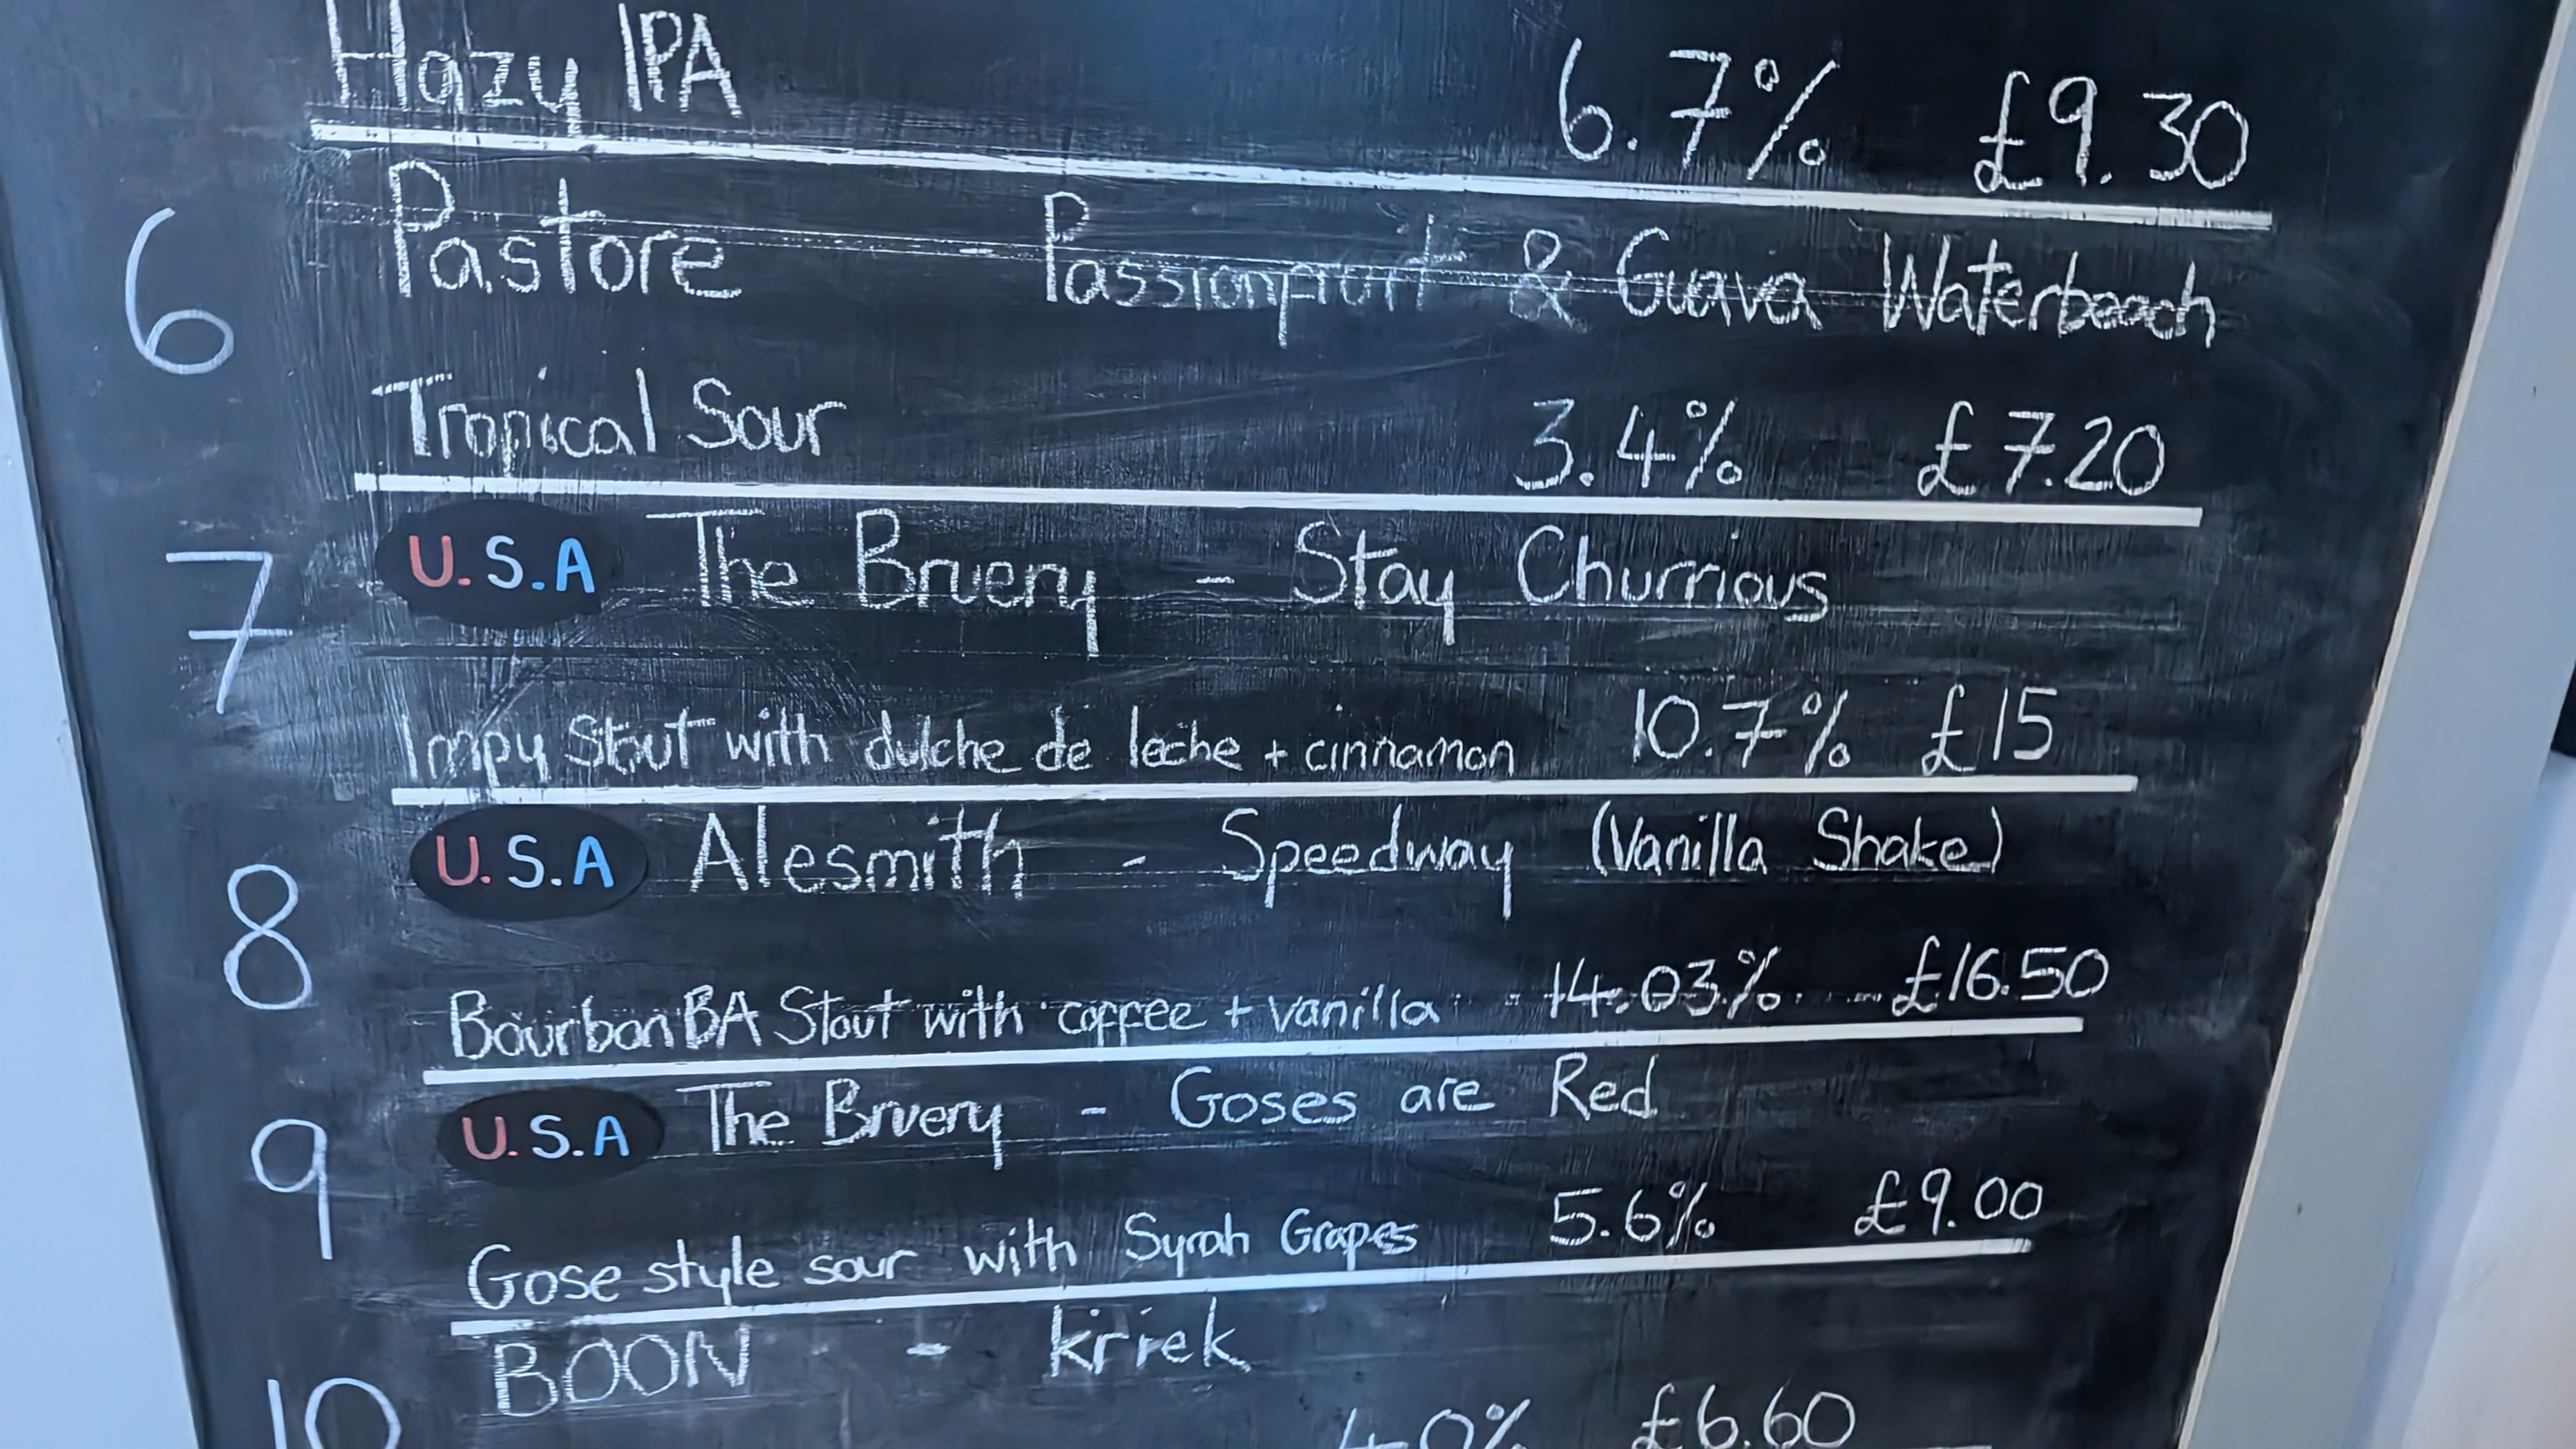 Hazy IPA 6.7% £9.30
6 Pastore - Passionfruit & Guava Waterbeach
Tropical Sour 3.4% £7.20
7 U.S.A The Bruery - Stay Churrious
Impy Stout with dulche de leche + cinnamon 10.7% £15
8 U.S.A Alesmith - Speedway (Vanilla Shake)
Bourbon BA Stout with coffee + vanilla 14.03% £16.50
9 U.S.A The Bruery - Goses are Red
Gose style sour with Syrah Grapes 5.6% £9.00
10 BOON - Kriek
4.0% £6.60